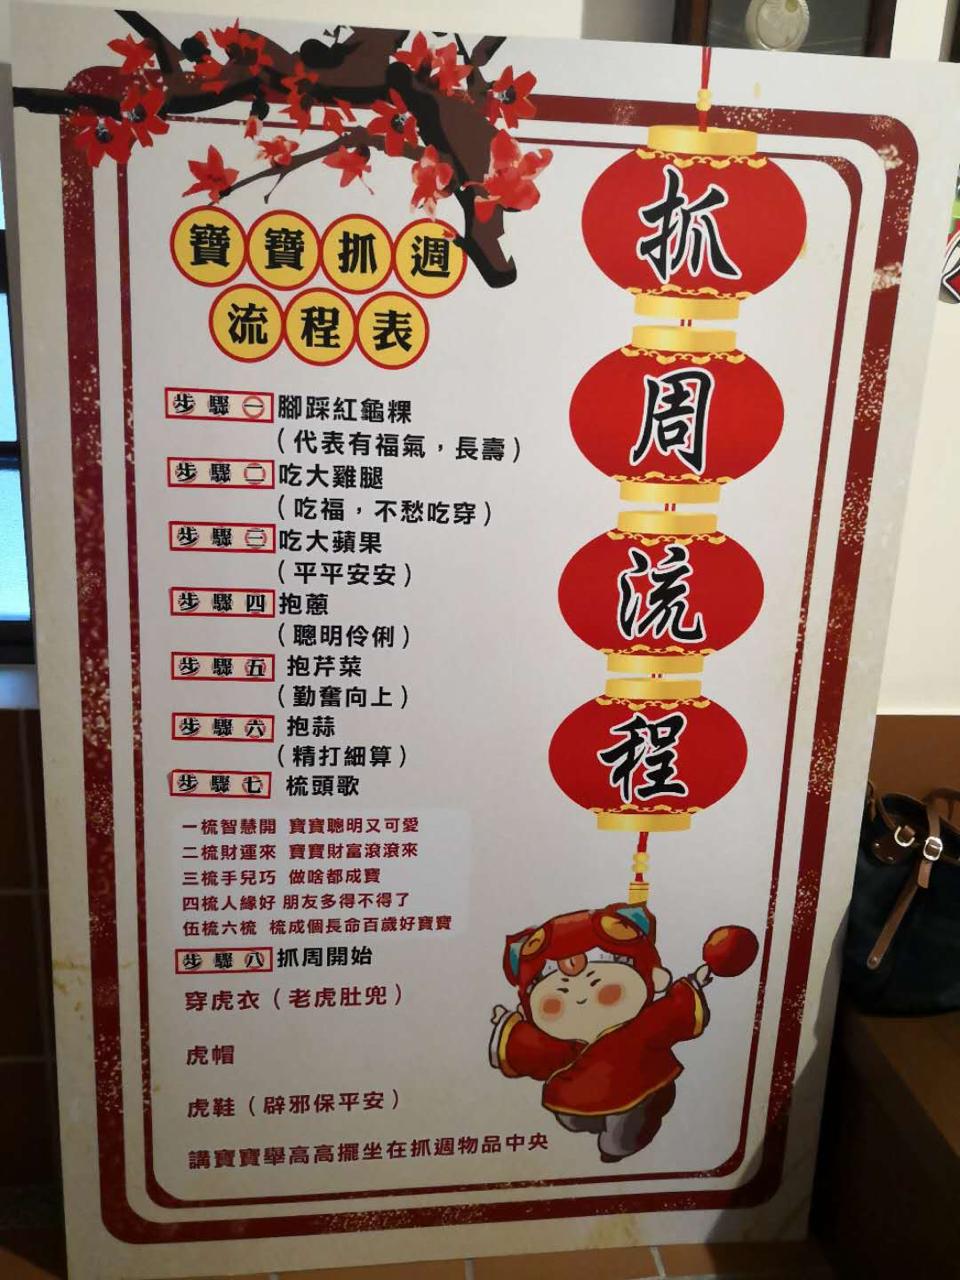 寶寶抓週
流程表
步驟一 腳踩紅龜粿
（代表有福氣，長壽）
步驟二 吃大雞腿
（吃福，不愁吃穿）
步驟三 吃大蘋果
（平平安安）
步驟四 抱蔥
（聰明伶俐）
步驟五 抱芹菜
（勤奮向上）
步驟六 抱蒜
（精打細算）
步驟七 梳頭歌
一梳智慧開 寶寶聰明又可愛
二梳財運來 寶寶財富滾滾來
三梳手兒巧 做啥都成寶
四梳人緣好 朋友多得不得了
伍梳六梳 梳成個長命百歲好寶寶
步驟八 抓周開始
穿虎衣（老虎肚兜）
虎帽
虎鞋（辟邪保平安）
講寶寶舉高高擺坐在抓週物品中央
抓周流程